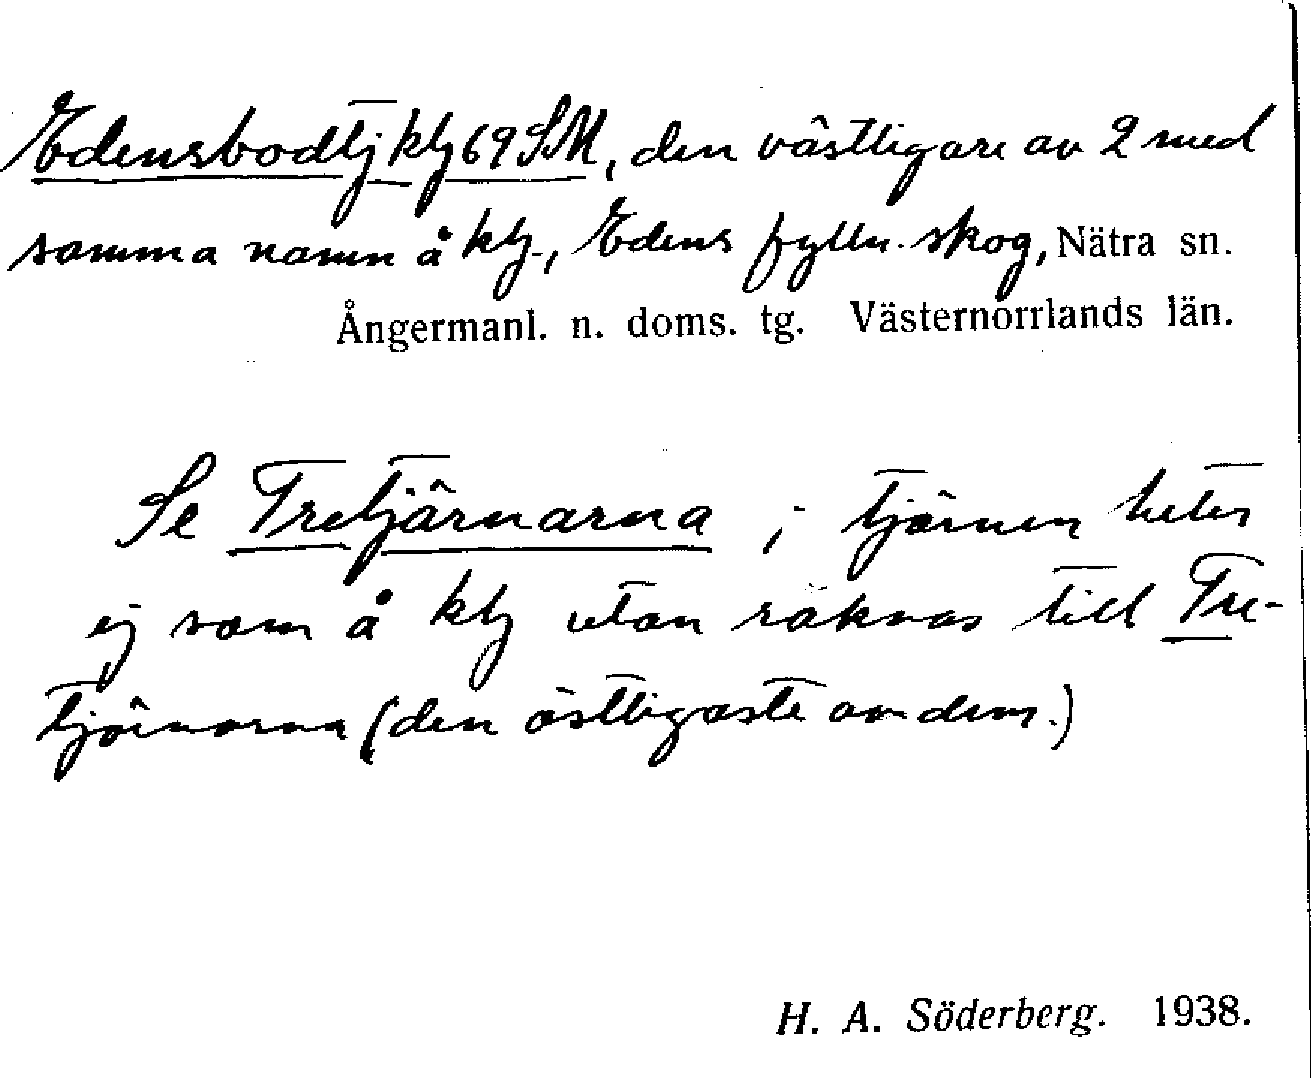 Edensbodtj ktj 69 SM, den västligare av 2 med
samma namn å ktj., Edens fylln. skog, Nätra sn.
Ångermanl. n. doms. tg. Västernorrlands län.
Se Tretjärnarna ; tjärnen heter
ej som å ktj utan räknas till Tre-
tjärnarna (den östligaste av dem.)
H. A. Söderberg. 1938.